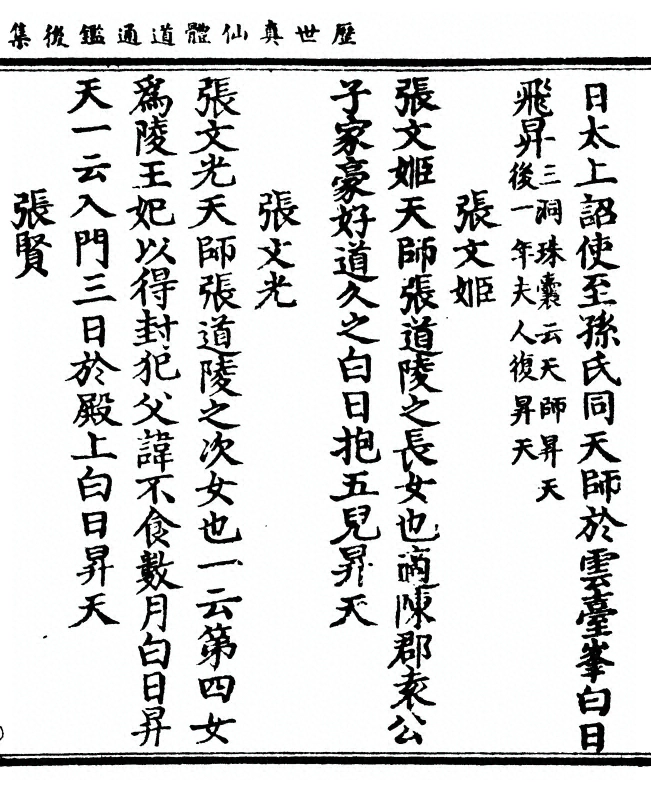 歷世真仙體道通鑑後集
日太上詔使至孫氏同天師於雲臺峯白日
飛昇三洞珠囊云天師昇天
後一年夫人復昇天
張文姬
張文姬天師張道陵之長女也適陳郡袁公
子家豪好道久之白日抱五兒昇天
張文光
張文光天師張道陵之次女也一云第四女
爲陵王妃以得封犯父諱不食數月白日昇
天一云入門三日於殿上白日昇天
張賢